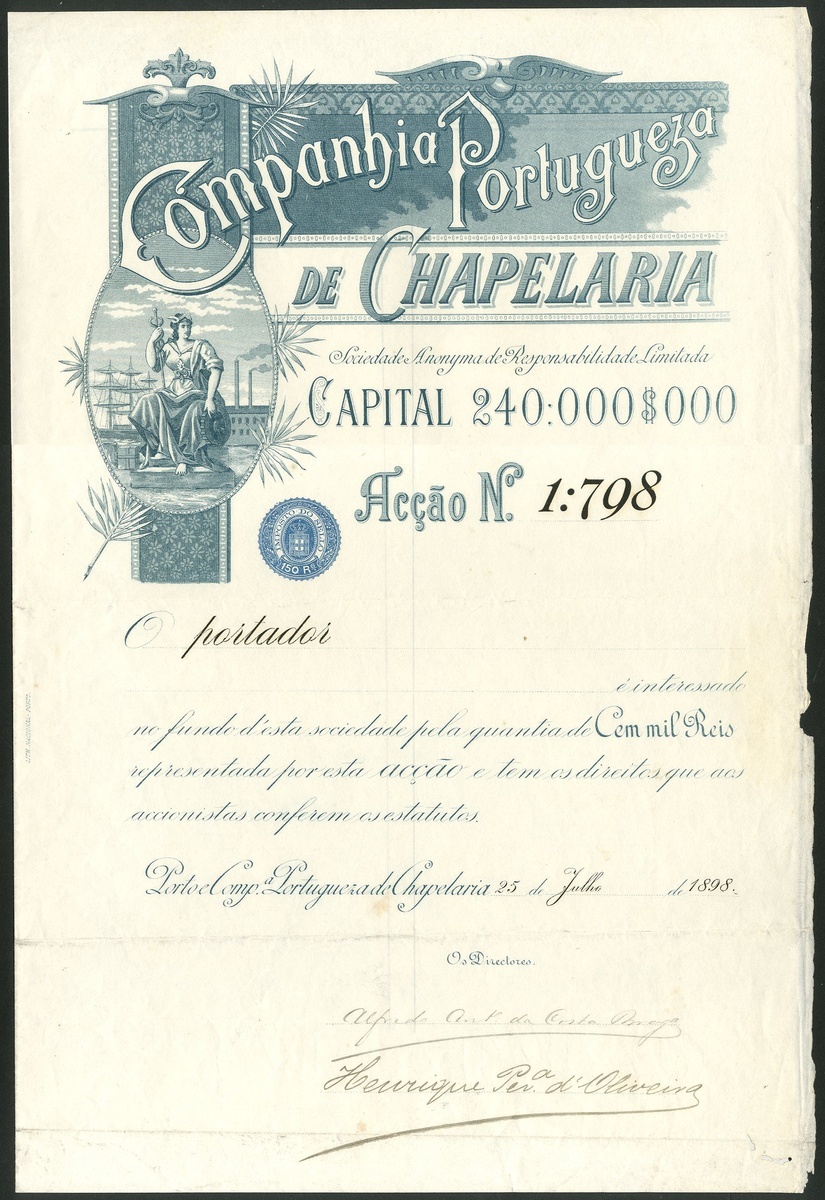 Companhia Portugueza
DE CHAPELARIA
Sociedade Anonyma de Responsabilidade Limitada
CAPITAL 240:000$000
Acção N.º 1:798
IMPOSTO DO SELLO
150 Rs
O portador
é interessado
no fundo d'esta sociedade pela quantia de Cem mil Reis
representada por esta acção e tem os direitos que aos
accionistas conferem os estatutos.
Porto e Comp.ª Portugueza de Chapelaria 25 de Julho de 1898.
Os Directores.
Alfredo Ant.º da Costa Braga
Henrique Per.ª d'Oliveira
LITH. NACIONAL-PORTO.